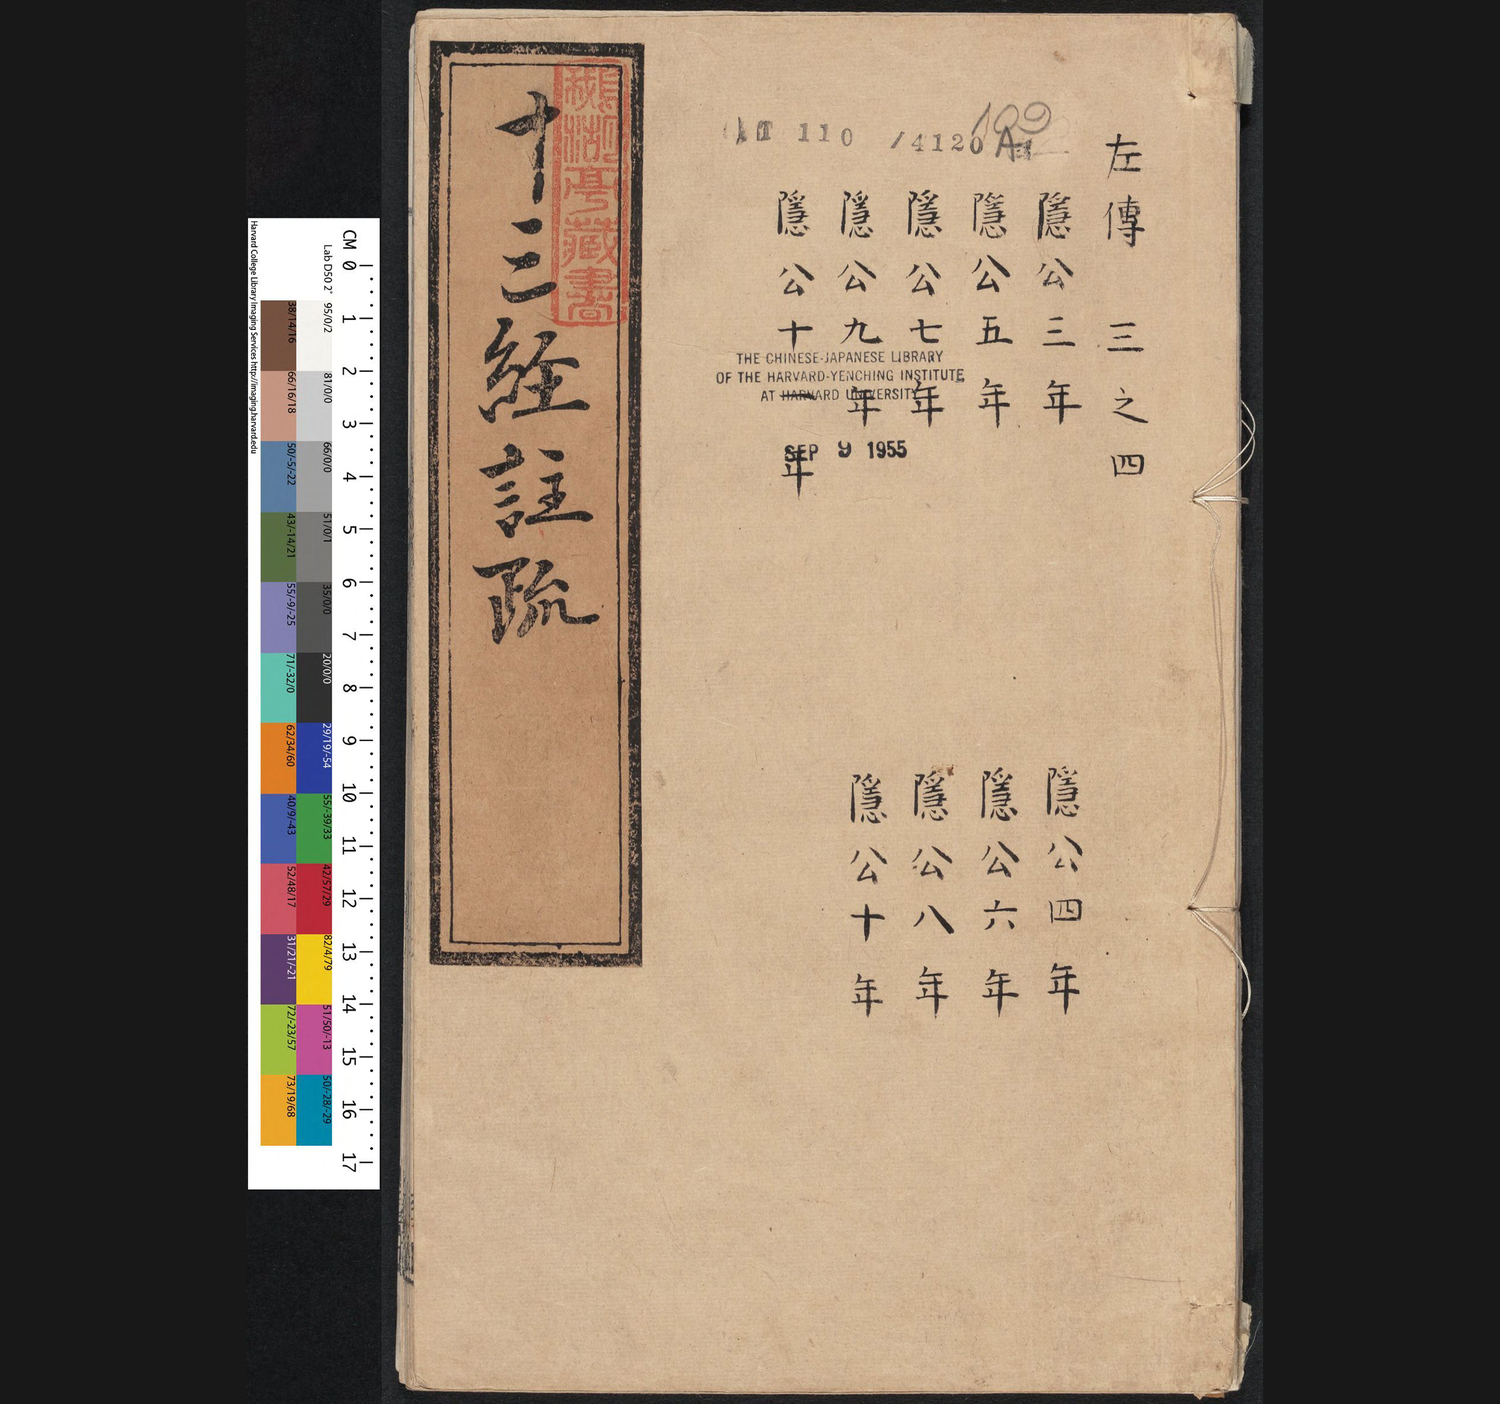 十三經註疏
湖亭藏書
110 /4120
左傳 三之四
隱公三年
隱公四年
隱公五年
隱公六年
隱公七年
隱公八年
隱公九年
隱公十年
隱公十一年
THE CHINESE-JAPANESE LIBRARY
OF THE HARVARD-YENCHING INSTITUTE
AT HARVARD UNIVERSITY
SEP 9 1955
CM 0 1 2 3 4 5 6 7 8 9 10 11 12 13 14 15 16 17
Lab D50 2°
95/0/2
81/0/0
66/0/0
51/0/1
35/0/0
20/0/0
29/19/-54
55/-39/33
42/57/29
82/4/79
51/50/-13
50/-28/-29
38/14/16
66/16/18
50/-5/-22
43/-14/21
55/-9/-25
71/-32/0
62/34/60
40/9/-43
52/48/17
31/21/-21
72/-23/57
73/19/68
Harvard College Library Imaging Services http://imaging.harvard.edu